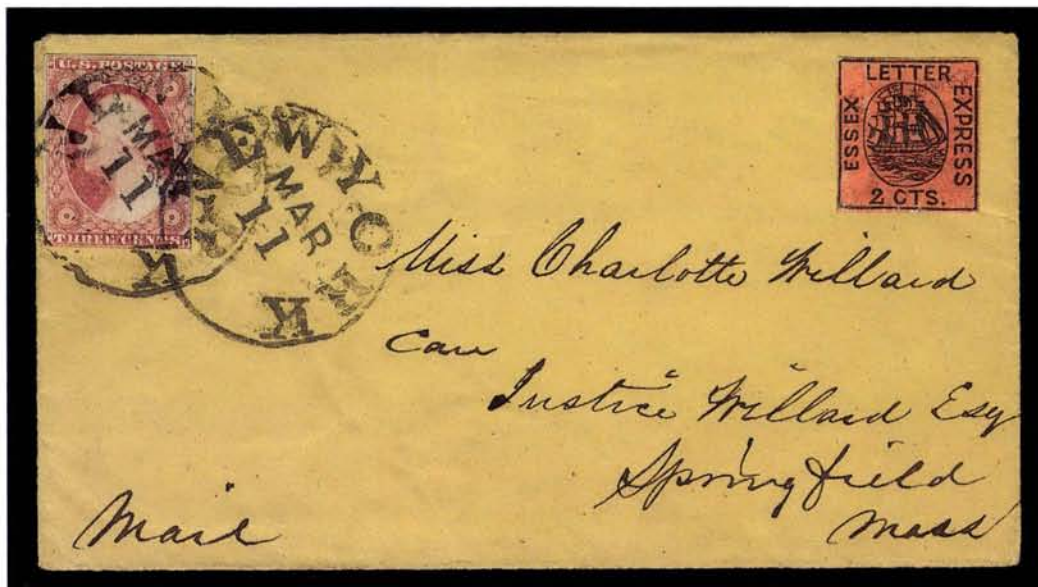 U.S. POSTAGE
THREE CENTS
NEW YORK
MAR
11
NEW YORK
MAR
11
LETTER
ESSEX
EXPRESS
2 CTS.
Miss Charlotte Willard
Care
Justice Willard Esq
Springfield
Mass
Mail